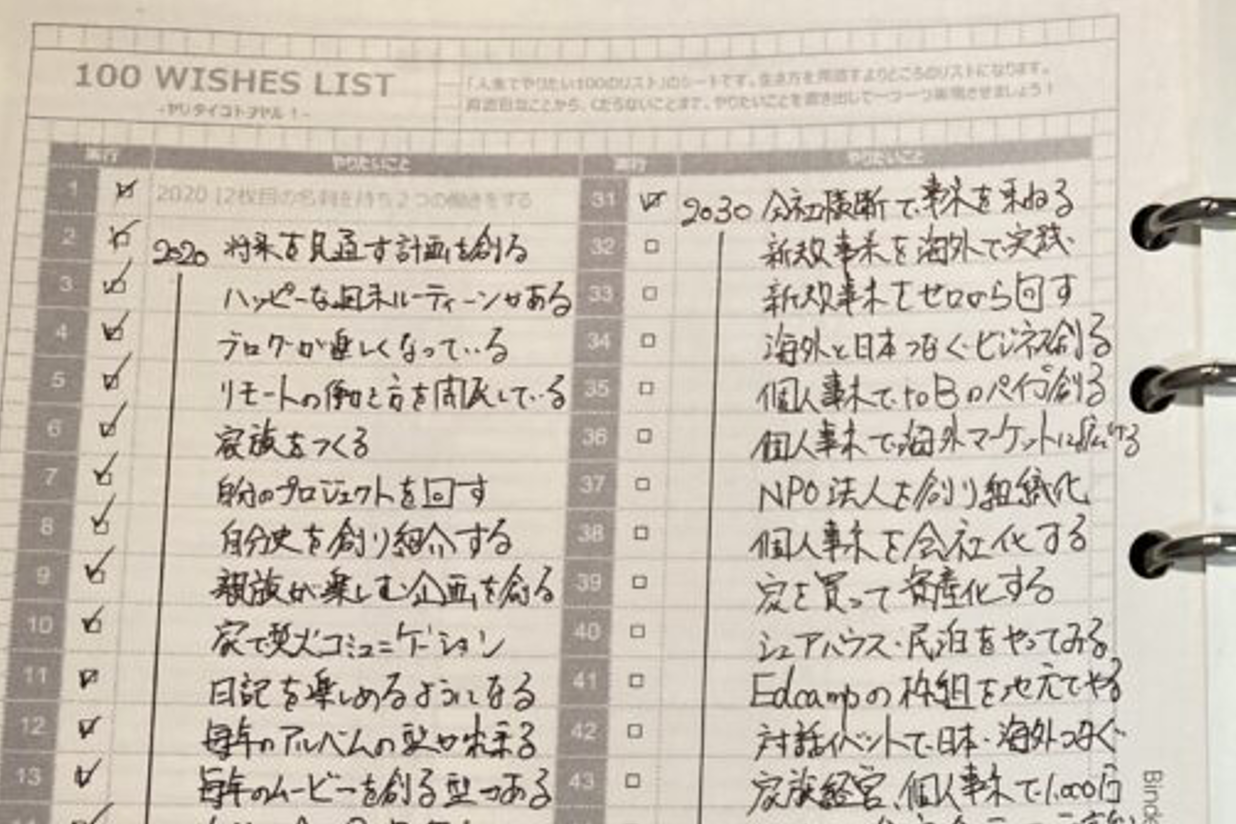 100 WISHES LIST
-ヤリタイコトヲヤル！-
「人生でやりたい100のリスト」のシートです。生き方を用意するよりどころのリストになります。
真面目なことから、くだらないことまで、やりたいことを書き出して一つ一つ実現させましょう！
実行 やりたいこと
1 2020 12枚目の名刺を持ち2つの働きをする
2 2020 将来を見通す計画を創る
3 ハッピーな週末ルーティーンがある
4 ブログが楽しくなっている
5 リモートの働き方を開発している
6 家族をつくる
7 自分のプロジェクトを回す
8 自分史を創り紹介する
9 親族が楽しむ企画を創る
10 家で焚火コミュニケーション
11 日記を楽しめるようになる
12 毎年のアルバムの型が出来る
13 毎年のムービーを創る型がある
実行 やりたいこと
31 2030 会社横断で事業を束ねる
32 新規事業を海外で実践
33 新規事業をゼロから回す
34 海外と日本つなぐビジネス創る
35 個人事業で to B のパイプ創る
36 個人事業で海外マーケットに広げる
37 NPO法人を創り組織化
38 個人事業を会社化する
39 家を買って資産化する
40 シェアハウス・民泊をやってみる
41 Edcampの枠組を地元でやる
42 対話イベントで日本・海外つなぐ
43 家族経営、個人事業で1,000万
Binde